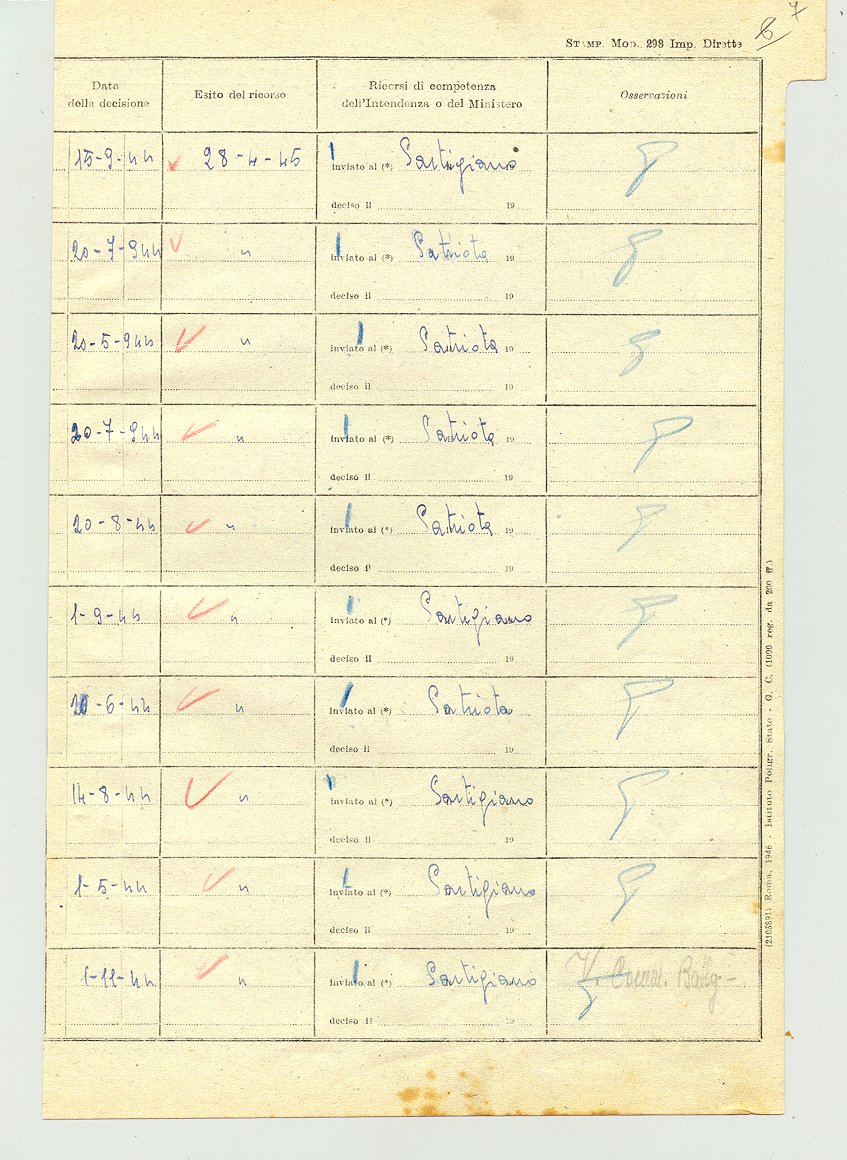 7
6
STAMP. MOD. 298 Imp. Dirette
Data
della decisione
Esito del ricorso
Ricorsi di competenza
dell'Intendenza o del Ministero
Osservazioni
15-9-44 28-4-45 inviato al (*) Partigiano
deciso il 19
20-7-944 " inviato al (*) Patriota 19
deciso il 19
20-5-944 " inviato al (*) Patriota 19
deciso il 19
20-7-944 " inviato al (*) Patriota 19
deciso il 19
20-8-44 " inviato al (*) Patriota 19
deciso il 19
1-9-44 " inviato al (*) Partigiano
deciso il 19
-6-44 " inviato al (*) Patriota
deciso il 19
14-8-44 " inviato al (*) Partigiano
deciso il 19
1-5-44 " inviato al (*) Partigiano
deciso il 19
1-11-44 " inviato al (*) Partigiano V. Comm. Battg-
deciso il 19
(2103891) Roma, 1946 - Istituto Poligr. Stato - G. C. (1000 reg. da 200 ff.)